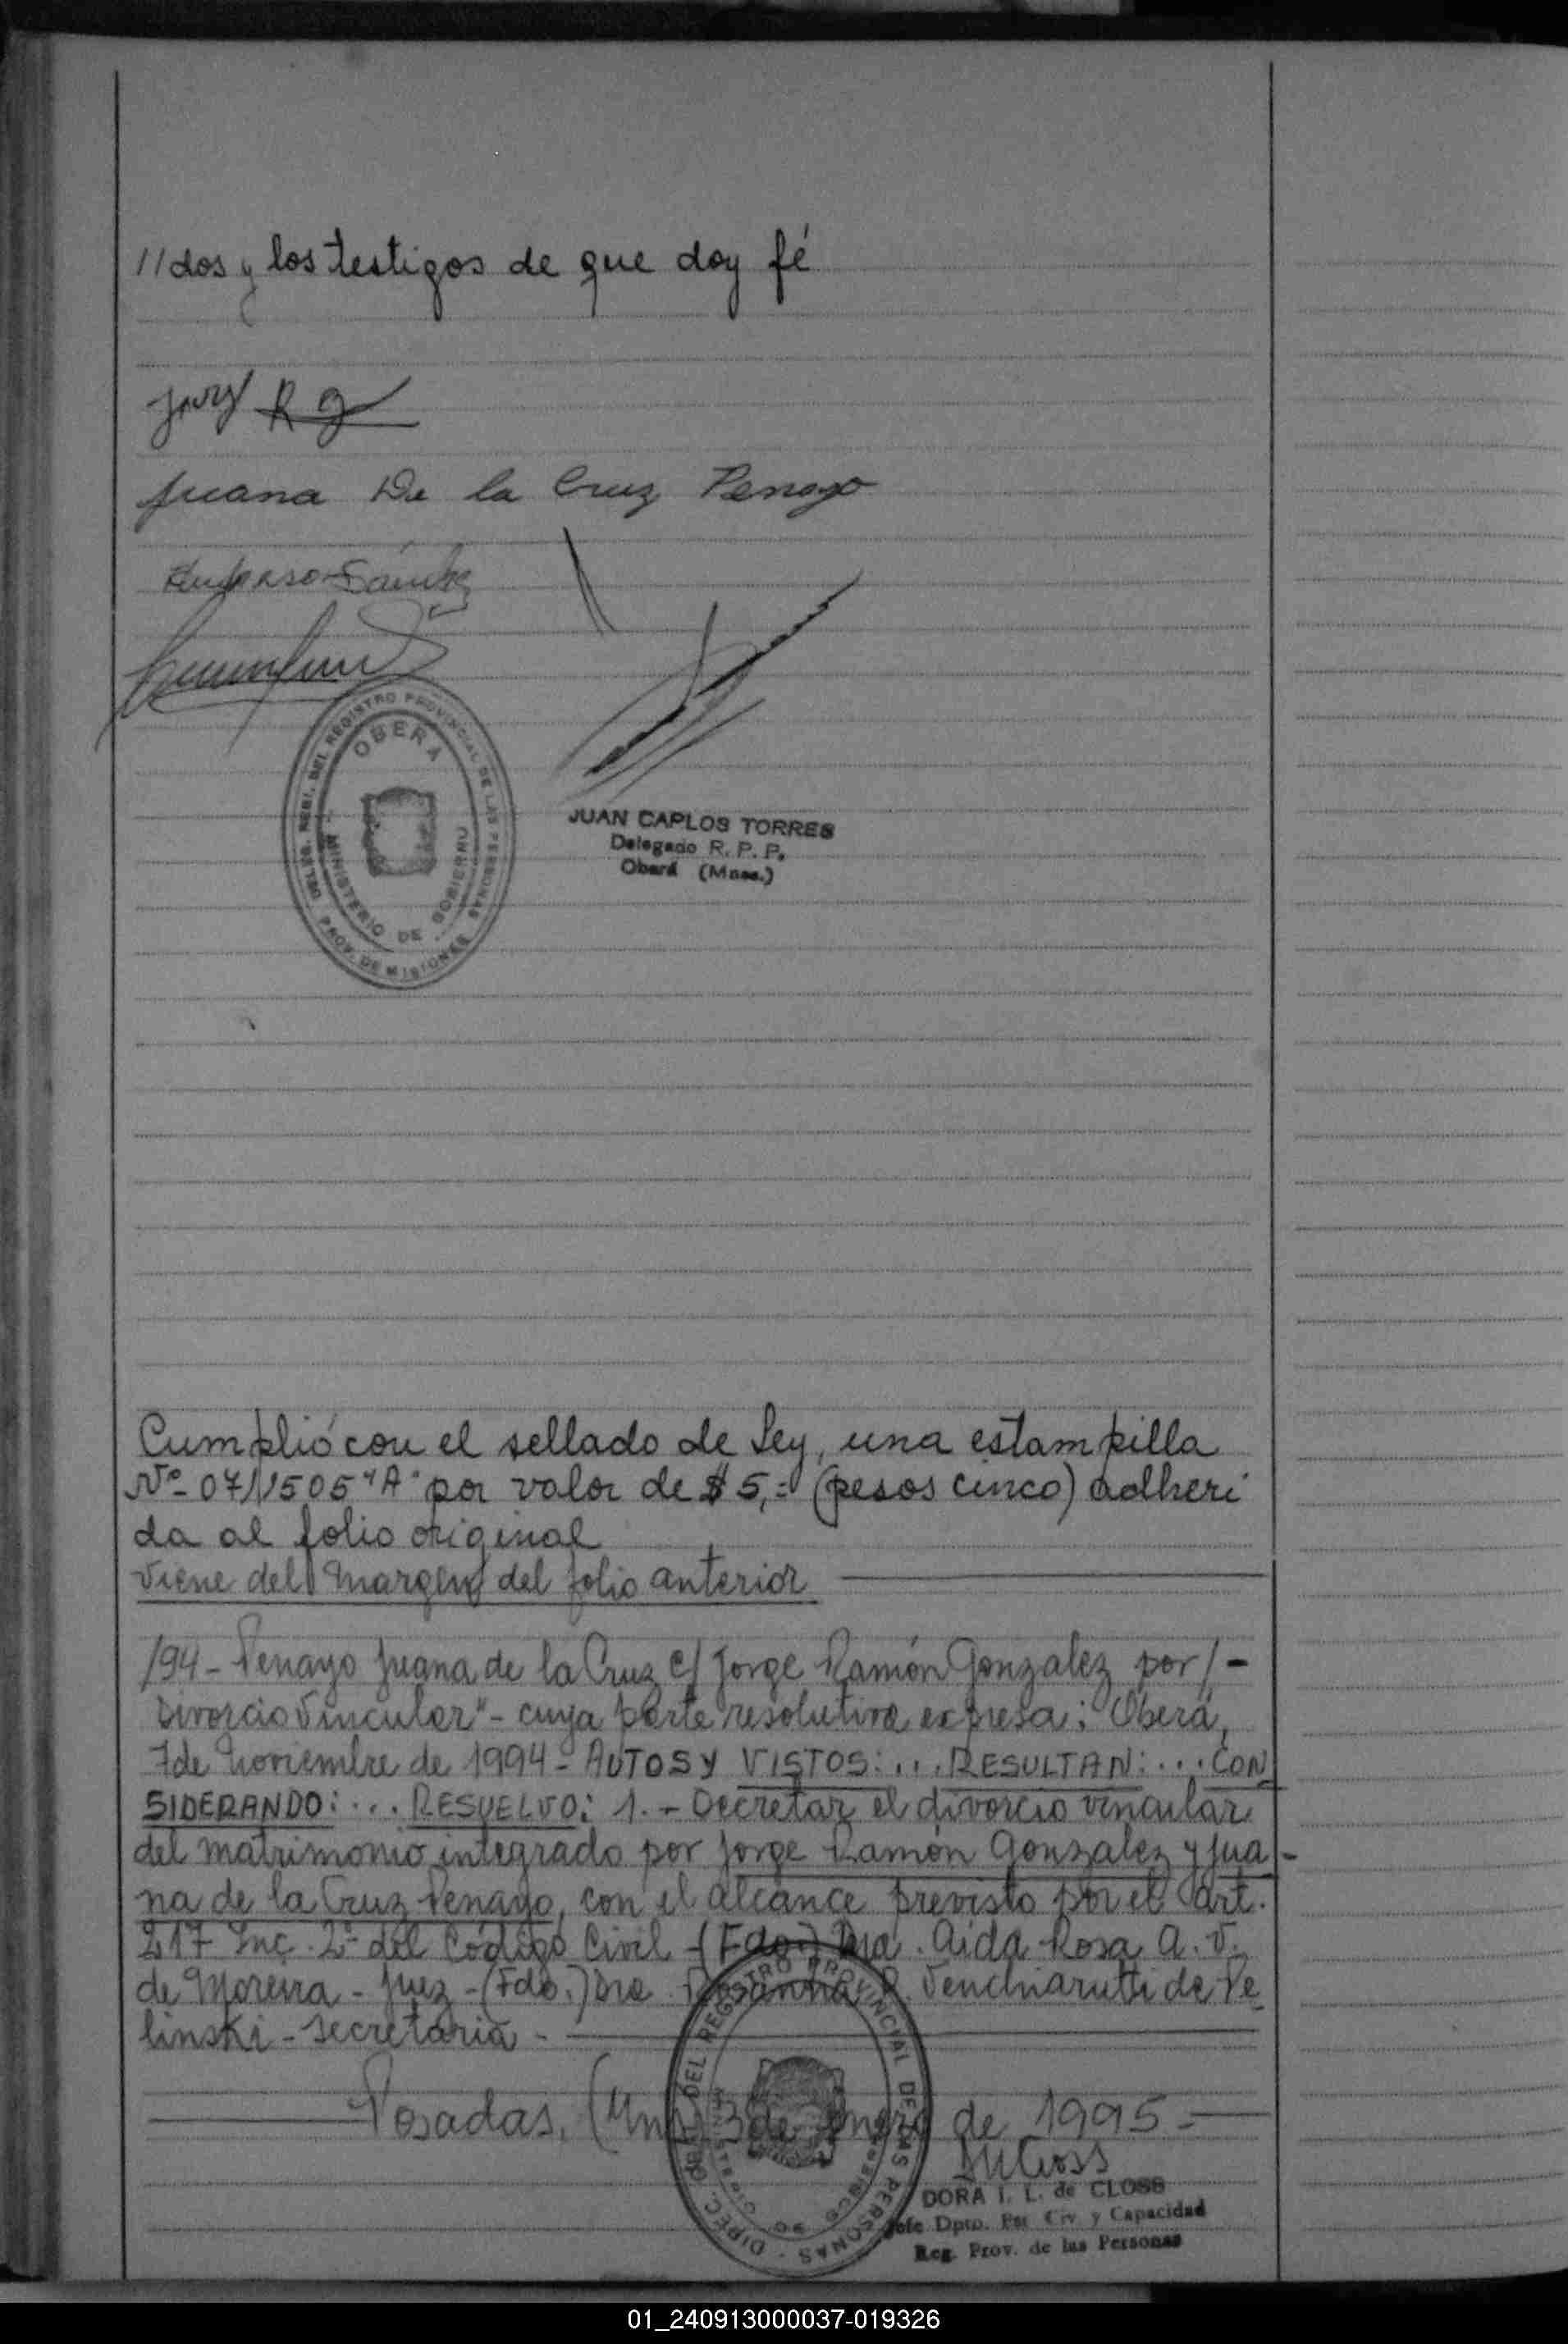 //dos y los testigos de que doy fé
Juana De la Cruz Penayo
DELEG. OBERÁ DEL REGISTRO PROVINCIAL DE LAS PERSONAS
OBERÁ
MINISTERIO DE GOBIERNO
PROV. DE MISIONES
JUAN CARLOS TORRES
Delegado R. P. P.
Oberá (Mnes.)
Cumplió con el sellado de Ley, una estampilla
Nº- 0711505 "A" por valor de $ 5,= (pesos cinco) adheri
da al folio original
Viene del margen del folio anterior
/94 - Penayo Juana de la Cruz c/ Jorge Ramón Gonzalez por /-
Divorcio Vincular" - cuya parte resolutiva expresa: Oberá,
7 de Noviembre de 1994 - AUTOS Y VISTOS: ... RESULTAN: ... CON
SIDERANDO: ... RESUELVO: 1. - Decretar el divorcio vincular
del matrimonio integrado por Jorge Ramón Gonzalez y Jua-
na de la Cruz Penayo, con el alcance previsto por el art.
217 Inc. 2º del Código Civil - (Fdo.) Dra. Aida Rosa A. V.
de Moreira - Juez - (Fdo.) Dra. Rosanna R. Venchiarutti de Pe
linski - Secretaria -
Posadas, (Mnes) 3 de enero de 1995 -
DIREC. GRAL. DEL REGISTRO PROVINCIAL DE LAS PERSONAS
DORA I. L. de CLOSS
Jefe Dpto. Est. Civ. y Capacidad
Reg. Prov. de las Personas
01_240913000037-019326